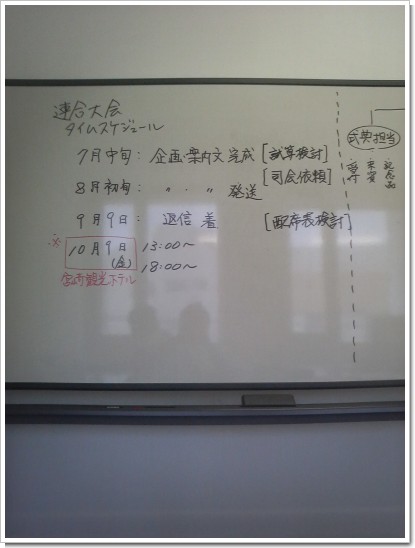 連合大会
タイムスケジュール
7月中旬： 企画・案内文 完成 [試算検討]
[司会依頼]
8月初旬： 〃 ・ 〃 発送
9月9日： 返信 着 [配席表検討]
※ 10月9日(金) 13:00～
18:00～
宮古観光ホテル
式典担当
受付
来賓
記念品